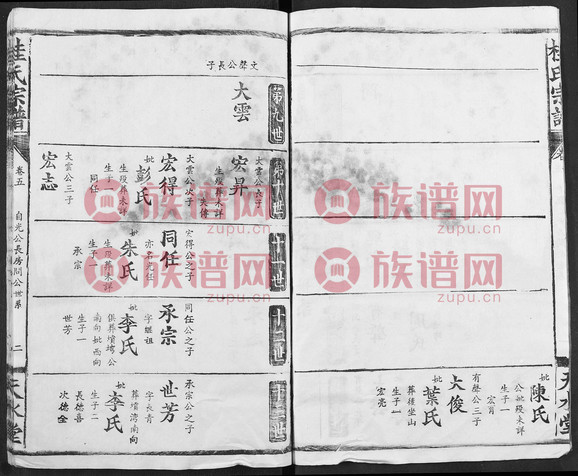 桂氏宗譜
卷五
自光公長房問公世系
二
天水堂
妣陳氏
公妣歿未詳
生子一
宏肖
有聲公三子
大俊
妣葉氏
葬後坐山
生子一
宏亮
第九世
文聲公長子
大雲
第十世
大雲公長子
宏昇
生歿葬未詳
失傳
大雲公次子
宏得
妣彭氏
生歿葬未詳
生子一
同任
大雲公三子
宏志
十一世
宏得公之子
同任
亦名光任
妣朱氏
生歿葬未詳
生子一
承宗
十二世
同任公之子
承宗
字繼祖
妣李氏
俱葬墳灣公
南向妣西向
生子一
世芳
十三世
承宗公之子
世芳
字長青
妣李氏
葬墳灣南向
生子二
長德喜
次德全
族谱网
zupu.cn
族谱网
zupu.cn
族谱网
zupu.cn
族谱网
zupu.cn